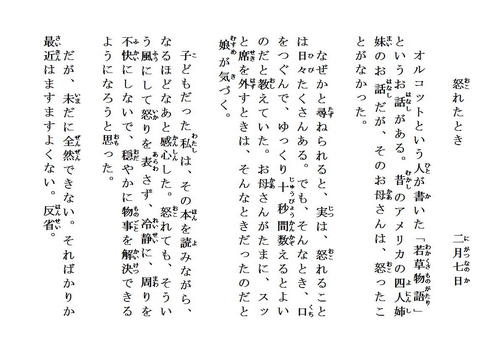 怒れたとき　　二月七日
オルコットという人が書いた「若草物語」
というお話がある。昔のアメリカの四人姉
妹のお話だが、そのお母さんは、怒ったこ
とがなかった。
なぜかと尋ねられると、実は、怒れること
は日々たくさんある。でも、そんなとき、口
をつぐんで、ゆっくり十秒間数えるとよい
のだと教えていた。お母さんがたまに、スッ
と席を外すときは、そんなときだったのだと
娘が気づく。
子どもだった私は、その本を読みながら、
なるほどなあと感心した。怒れても、そうい
う風にして怒りを表さず、冷静に、周りを
不快にしないで、穏やかに物事を解決できる
ようになろうと思った。
だが、未だに全然できない。そればかりか
最近はますますよくない。反省。